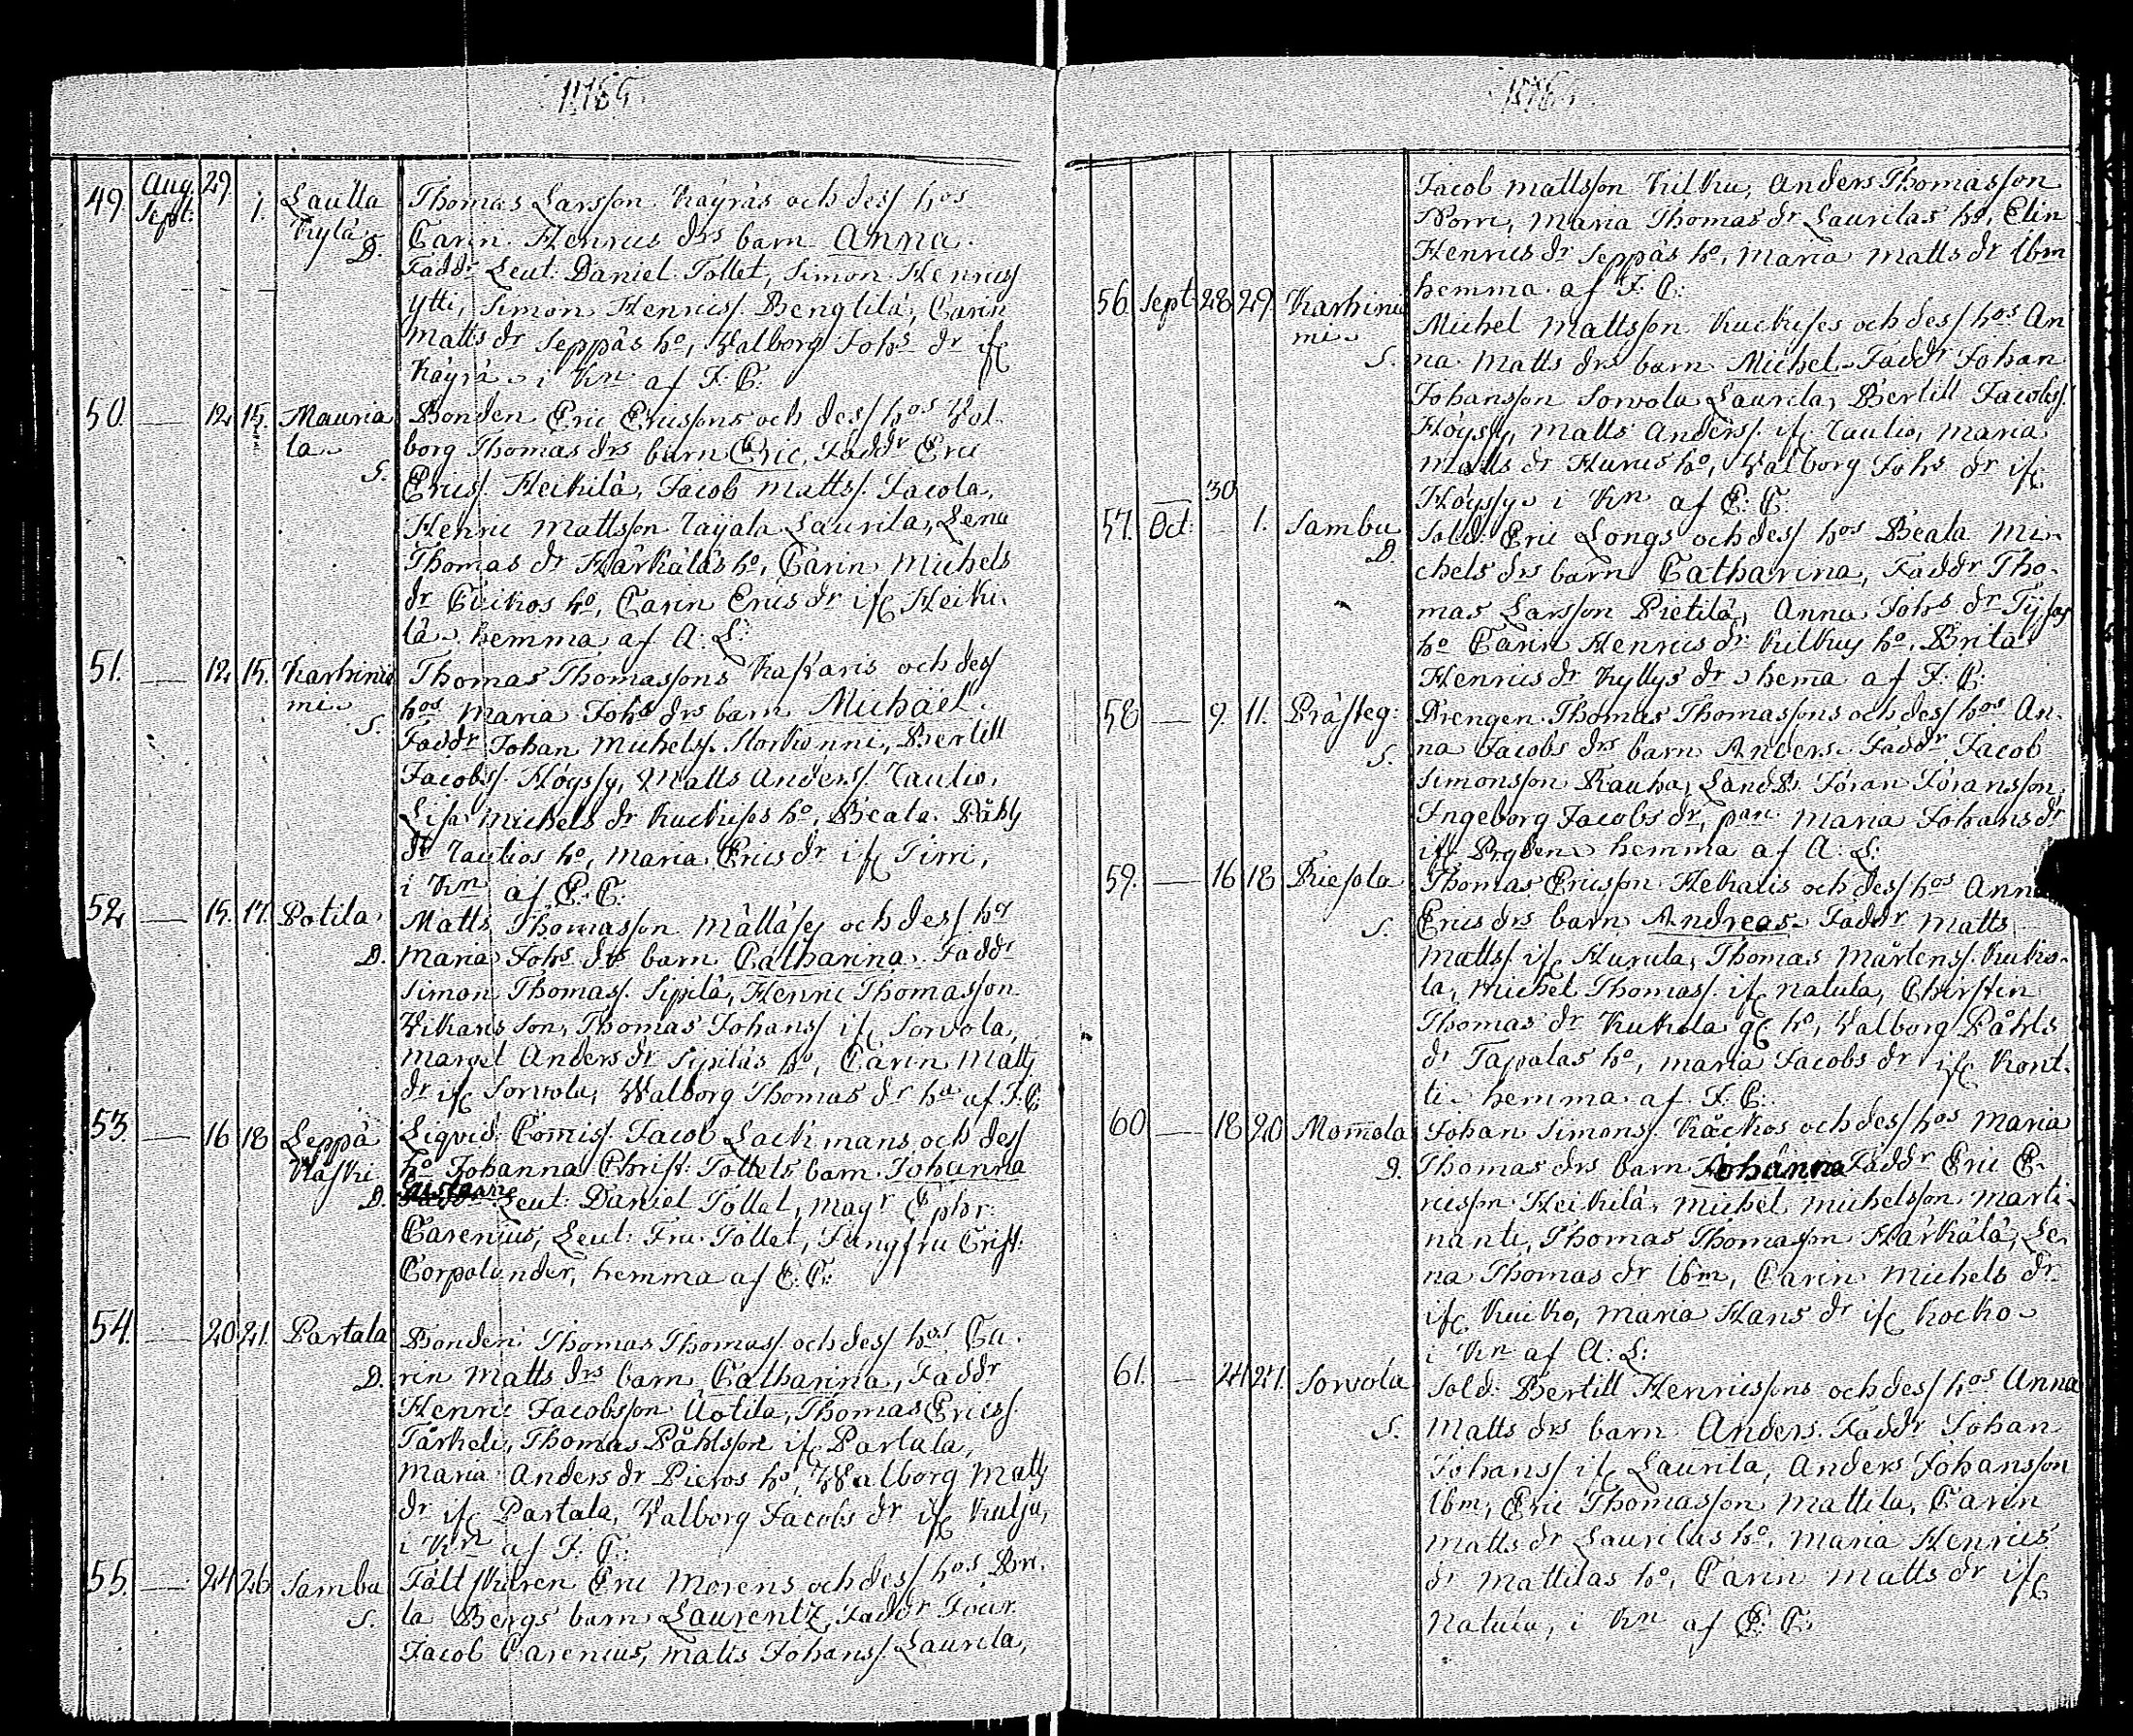 1765
49 Aug. 29. Lautta Thomas Larsson Käyräs och dess hos
Sept: 1. Kylä Carin Henrics drs barn Anna.
D. Faddr Leut: Daniel Tollet, Simon Henricss
Ytti, Simon Henricss. Bengtilä, Carin
Matts dr Seppäs ho, Walborg Johs dr ifr
Käyrä i Kn af F: C:
50. — 12 15. Mauria Bonden Eric Ericssons och dess hos Val
la borg Thomas drs barn Eric, Faddr Eric
S. Ericss. Heikilä, Jacob Mattss. Jacola,
Henric Mattsson Laurila, Lena
Thomas dr Härkäläs ho, Carin Michels
dr Cuikos ho, Carin Erics dr ifr Heiki
lä hemma af A: L:
51. — 12 15. Karhinie Thomas Thomassons Kaskaris och dess
mi hos Maria Johs drs barn Michäel.
S. Faddr Johan Michelss. Storkonni, Bertill
Jacobss. Höyssy, Matts Anderss. Taulio,
Lisa Michels dr Kuckises ho, Beata Påhls
dr Taulios ho, Maria Erics dr ifr Tirri,
i Kn af E: C:
52 — 15. 17. Potila Matts Thomasson och dess hos
D. Maria Johs drs barn Catharina. Faddr
Simon Thomass. Sipilä, Henric Thomasson
Wikaris son, Thomas Johanss ifr Sorvola,
Marget Anders dr Sipiläs ho, Carin Matts
dr ifr Sorvola, Walborg Thomas dr af F: C:
53. — 16 18 Leppä Liqvid: Commiss. Jacob Lackmans och dess
Käski ho Johanna Christ: Tollets barn Johanna
D. Leut: Daniel Tollet, Magr Ephr:
Carenius, Leut: Fru Tollet, Jungfru Crist:
Corpolander, hemma af E: C:
54. — 20 21. Partala Bonden Thomas Thomass och dess hos Ca
D. rin Matts drs barn Catharina, Faddr
Henric Jacobsson Uotila, Thomas Ericss
Tärkeli, Thomas Påhlsson ifr Partala,
Maria Anders dr Pieros ho, Walborg Matts
dr ifr Partala, Valborg Jacobs dr ifr Kulju,
i Kn af F: C:
55. — 24 26 Samba Fält skären Eric Morens och dess hos Bri
S. ta Bergs barn Laurentz, Faddr Four:
Jacob Carenius, Matts Johanss. Laurila,
Jacob Mattsson Kilku, Anders Thomasson
Norri, Maria Thomas dr Laurilas ho, Elin
Henrics dr Seppäs ho, Maria Matts dr Ibm
hemma af F: C:
56. Sept: 28 29. Karhinie Michel Mattsson Kuckises och dess hos An
mi
S. na Matts drs barn Michel. Faddr Johan
Johansson Sorvola Laurila, Bertill Jacobss.
Höyssy, Matts Anderss. ifr Taulio, Maria
Matts dr Hurus ho, Walborg Johs dr ifr
Höyssy i Kn af E: C:
— 30
57. Oct: 1. Sambu Sold: Eric Longs och dess hos Beata Mi
D. chels drs barn Catharina, Faddr Tho
mas Larsson Pietilä, Anna Johs dr
ho Carin Henrics dr Kilkus ho, Brita
Henrics dr Kyllys dr hemma af F: C:
58 — 9. 11. Prästeg: Drengen Thomas Thomassons och dess hos An
S. na Jacobs drs barn Anders. Faddr Jacob
Simonsson Rauha, Jöran Jöransson,
Ingeborg Jacobs dr, Maria Johans dr
ifr hemma af A: L:
59. — 16 18 Riesola Thomas Ericsson Hekalis och dess hos Anna
S. Erics drs barn Andreas. Faddr Matts
Mattss ifr Hurula, Thomas Mårtenss. Kuko
la, Michel Thomass. ifr Natula, Christin
Thomas dr Kukola ho, Valborg Påhls
dr Tapalas ho, Maria Jacobs dr ifr Kont
ti hemma af F: C:
60 — 18 20 Mommola Johan Simonss. och dess hos Maria
D. Thomas drs barn Johanna Faddr Eric E
ricsson Heikilä, Michel Michelsson Marti
nanti, Thomas Thomasson Härkälä, Le
na Thomas dr Ibm, Carin Michels dr
ifr Kuiko, Maria Hans dr ifr
i Kn af A: L:
61. — 24 27. Sorvola Sold: Bertill Henricssons och dess hos Anna
S. Matts drs barn Anders. Faddr Johan
Johanss ifr Laurila, Anders Johansson
Ibm, Eric Thomasson Mattila, Carin
Matts dr Laurilas ho, Maria Henrics
dr Mattilas ho, Carin Matts dr ifr
Natula, i Kn af E: C: